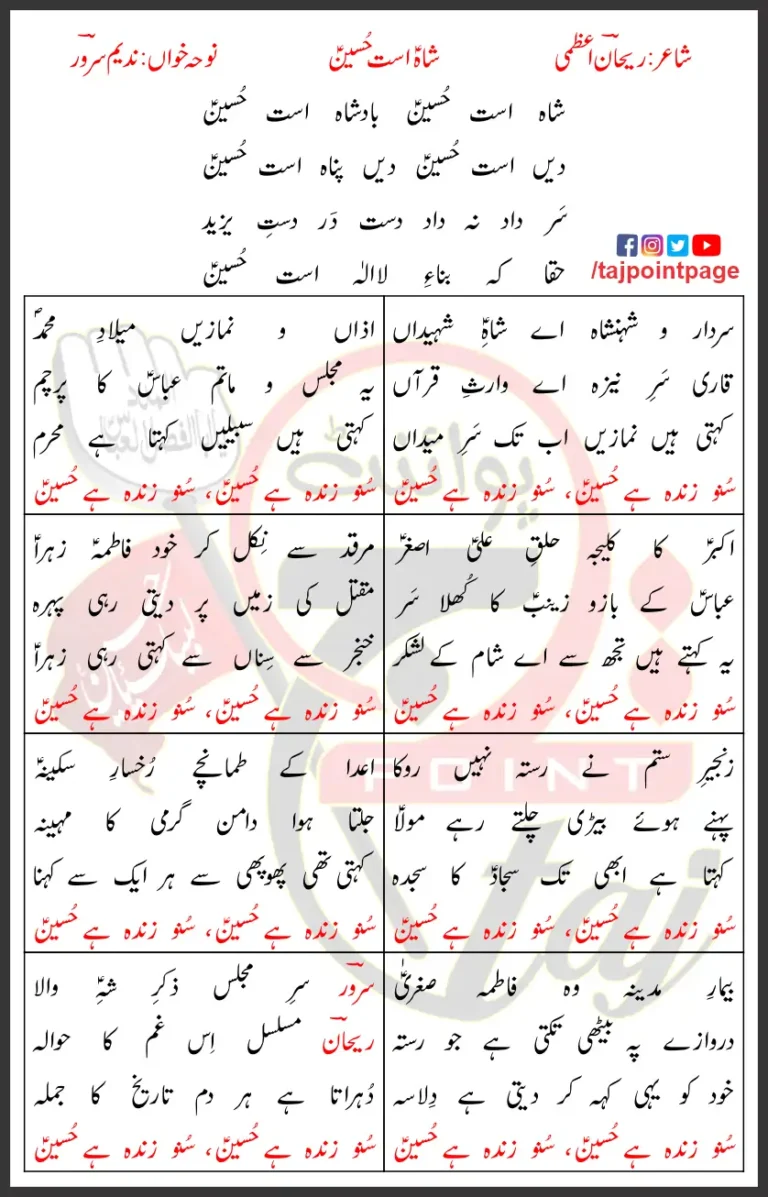 شاعر: ریحان اعظمی شاہؑ است حُسینؑ نوحہ خواں: ندیم سرور
شاہ است حُسینؑ بادشاہ است حُسینؑ
دیں است حُسینؑ دیں پناہ است حُسینؑ
سَر داد نہ داد دست دَر دستِ یزید
حقا کہ بناءِ لاالہٰ است حُسینؑ
/tajpointpage
سردار و شہنشاہ اے شاہِؑ شہیداں
قاری سَرِ نیزہ اے وارثِ قرآں
کہتی ہیں نمازیں اب تک سَرِ میداں
سُنو زندہ ہے حُسینؑ، سُنو زندہ ہے حُسینؑ
اذاں و نمازیں میلادِ محمدؐ
یہ مجلس و ماتم عباسؑ کا پرچم
کہتی ہیں سبیلیں کہتا ہے محرم
سُنو زندہ ہے حُسینؑ، سُنو زندہ ہے حُسینؑ
اکبرؑ کا کلیجہ حلقِ علیؑ اصغرؑ
عباسؑ کے بازو زینبؑ کا کُھلا سَر
یہ کہتے ہیں تجھ سے اے شام کے لشکر
سُنو زندہ ہے حُسینؑ، سُنو زندہ ہے حُسینؑ
مرقد سے نِکل کر خود فاطمہؑ زہراؑ
مقتل کی زمیں پر دیتی رہی پہرہ
خنجر سے سِناں سے کہتی رہی زہراؑ
سُنو زندہ ہے حُسینؑ، سُنو زندہ ہے حُسینؑ
زنجیرِ ستم نے رستہ نہیں روکا
پہنے ہوئے بیڑی چلتے رہے مولاؑ
کہتا ہے ابھی تک سجادؑ کا سجدہ
سُنو زندہ ہے حُسینؑ، سُنو زندہ ہے حُسینؑ
اعدا کے طمانچے رُخسارِ سکینہؑ
جلتا ہوا دامن گرمی کا مہینہ
کہتی تھی پھوپھی سے ہر ایک سے کہنا
سُنو زندہ ہے حُسینؑ، سُنو زندہ ہے حُسینؑ
بیمارِ مدینہ وہ فاطمہ صغریٰؑ
دروازے پہ بیٹھی تکتی ہے جو رستہ
خود کو یہی کہہ کر دیتی ہے دِلاسہ
سُنو زندہ ہے حُسینؑ، سُنو زندہ ہے حُسینؑ
سرور سرِ مجلس ذکرِ شہِؑ والا
ریحان مسلسل اِس غم کا حوالہ
دُہراتا ہے ہر دم تاریخ کا جملہ
سُنو زندہ ہے حُسینؑ، سُنو زندہ ہے حُسینؑ
پوائنٹ
POINT
taj